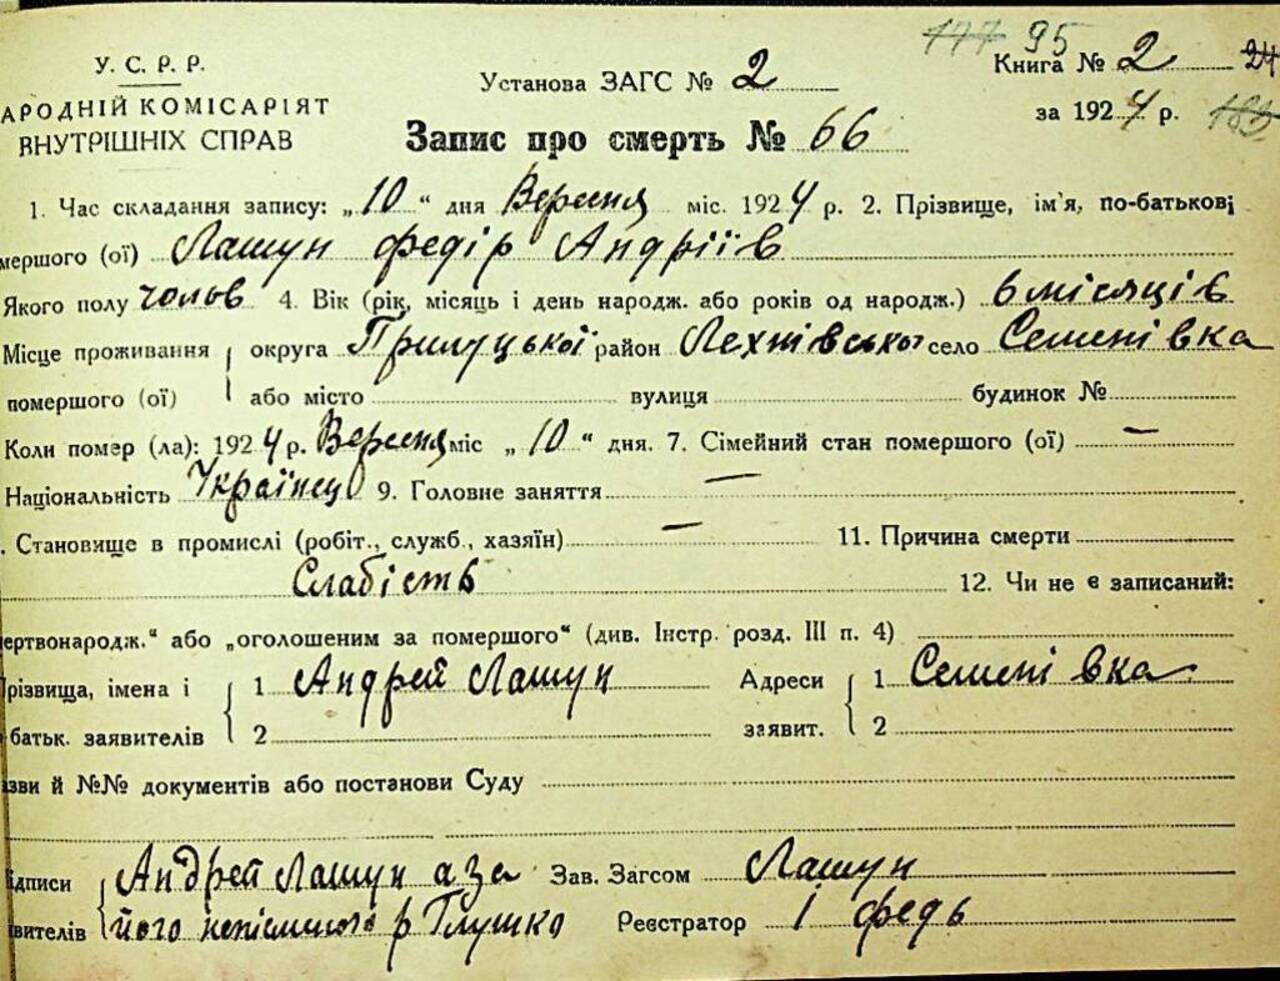 177 95
У. С. Р. Р.
Установа ЗАГС № 2
Книга № 2 24
АРОДНІЙ КОМІСАРІЯТ
ВНУТРІШНІХ СПРАВ
за 1924 р. 183
Запис про смерть № 66
1. Час складання запису: „10“ дня Вересня міс. 1924 р. 2. Прізвище, ім'я, по-батькові
мершого (ої) Лашун федір Андріїв
Якого полу чолов 4. Вік (рік, місяць і день народж. або років од народж.) 6 місяців
Місце проживання округа Прилуцької район Лехнівсько село Семенівка
помершого (ої) або місто вулиця будинок №
Коли помер (ла): 1924 р. Вересня міс „10“ дня. 7. Сімейний стан помершого (ої) —
Національність Українец 9. Головне заняття —
. Становище в промислі (робіт., служб., хазяїн) — 11. Причина смерти
Слабість 12. Чи не є записаний:
ертвонародж.“ або „оголошеним за помершого“ (див. Інстр. розд. III п. 4)
різвища, імена і 1 Андрей Лашун Адреси 1 Семенівка
батьк. заявителів 2 заявит. 2
азви й №№ документів або постанови Суду
ідписи Андрей Лашун а за Зав. Загсом Лашун
явителів його неписьменого р Глушко Реєстратор І федь